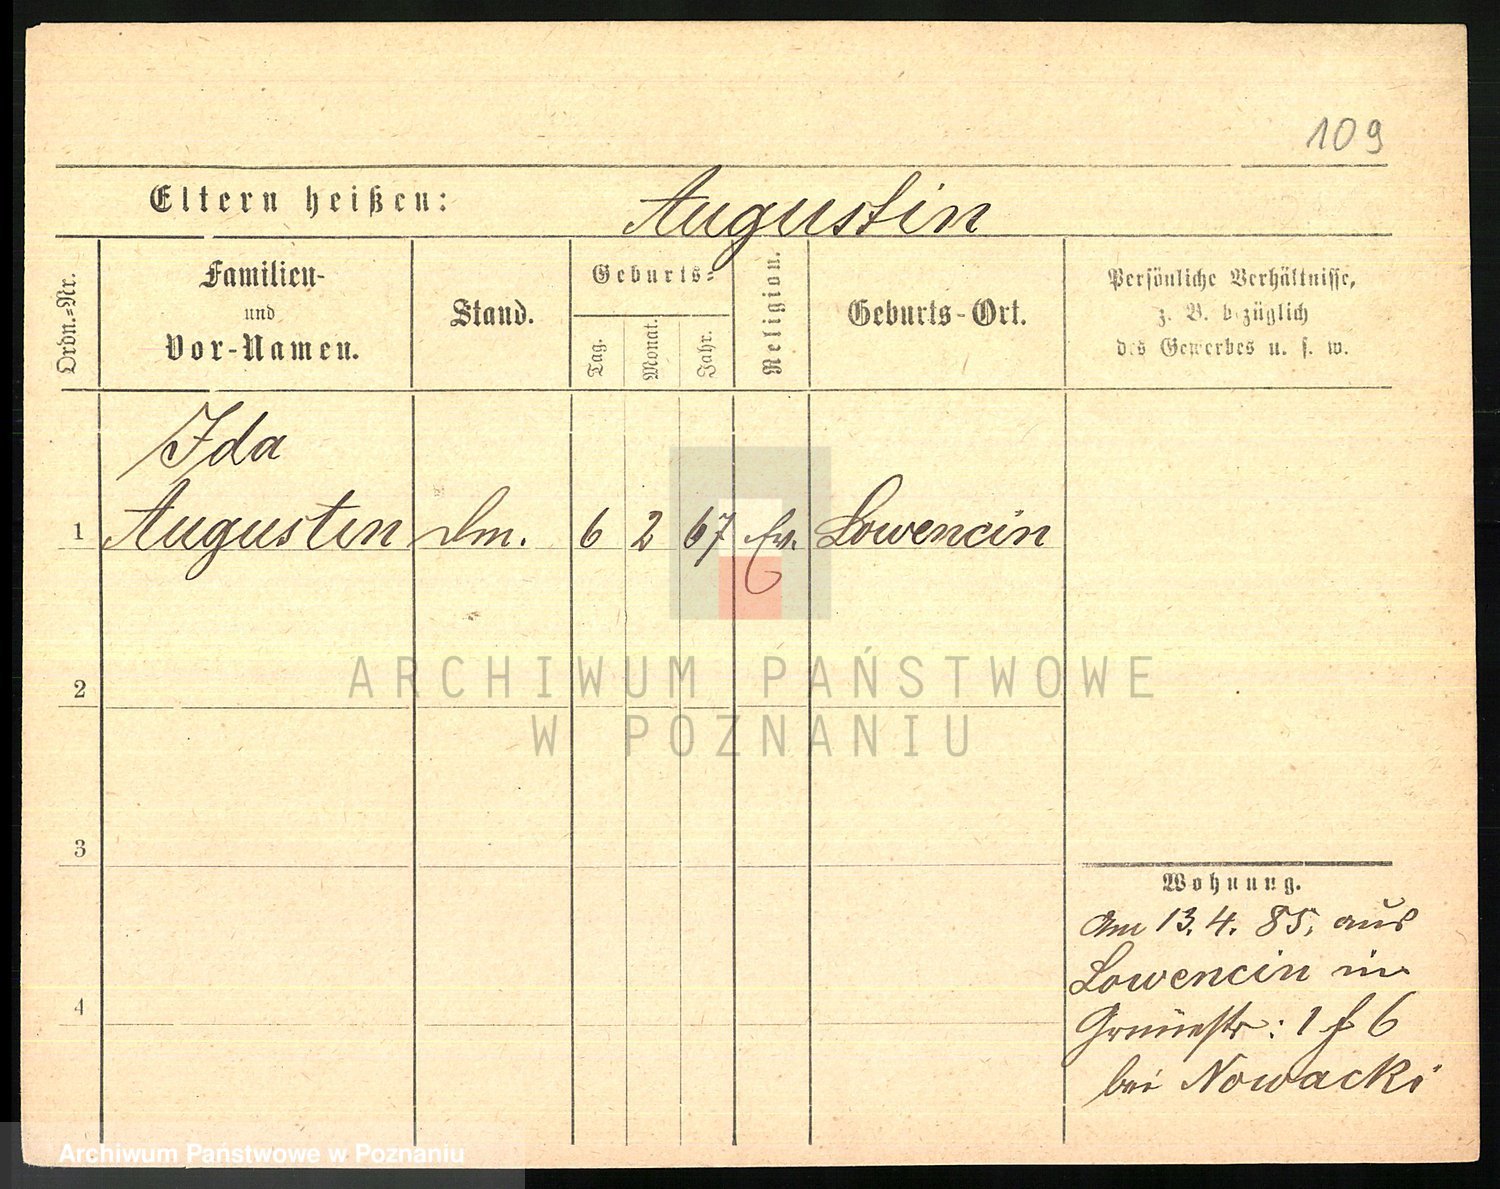 109
Eltern heißen: Augustin
Ordn.-Nr.
Familien-
und
Vor-Namen.
Stand.
Geburts-
Tag.
Monat.
Jahr.
Religion.
Geburts-Ort.
Persönliche Verhältnisse,
z. B. bezüglich
des Gewerbes u. s. w.
Ida
1 Augustin Dm. 6 2 67 Ev. Lowencin
2
3
4
Wohnung.
Am 13. 4. 85. aus
Lowencin in
Grünestr: 1 f 6
bei Nowacki
ARCHIWUM PAŃSTWOWE
W POZNANIU
Archiwum Państwowe w Poznaniu